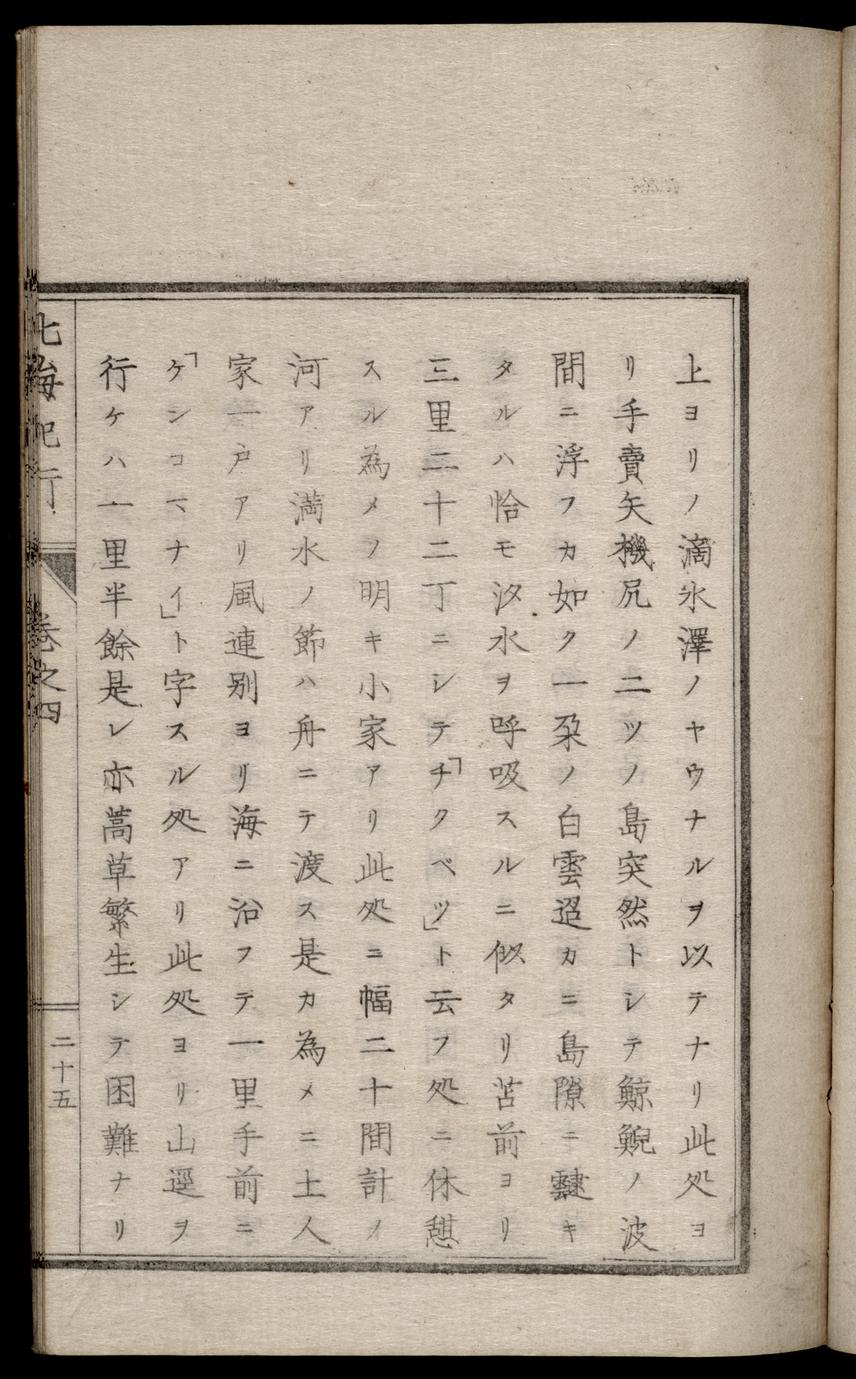 上ヨリノ滴水澤ノヤウナルヲ以テナリ此処ヨ
リ手賣矢機尻ノ二ツノ島突然トシテ鯨鯢ノ波
間ニ浮フカ如ク一朶ノ白雲迢カニ島隙ニ靆キ
タルハ恰モ汐水ヲ呼吸スルニ似タリ苫前ヨリ
三里二十二丁ニシテ「チクベツ」ト云フ処ニ休憩
スル為メノ明キ小家アリ此処ニ幅二十間計ノ
河アリ満水ノ節ハ舟ニテ渡ス是カ為メニ土人
家一戸アリ風連別ヨリ海ニ沿フテ一里手前ニ
「ケシコマナイ」ト字スル処アリ此処ヨリ山逕ヲ
行ケハ一里半餘是レ亦蒿草繁生シテ困難ナリ
北海紀行
巻之四
二十五